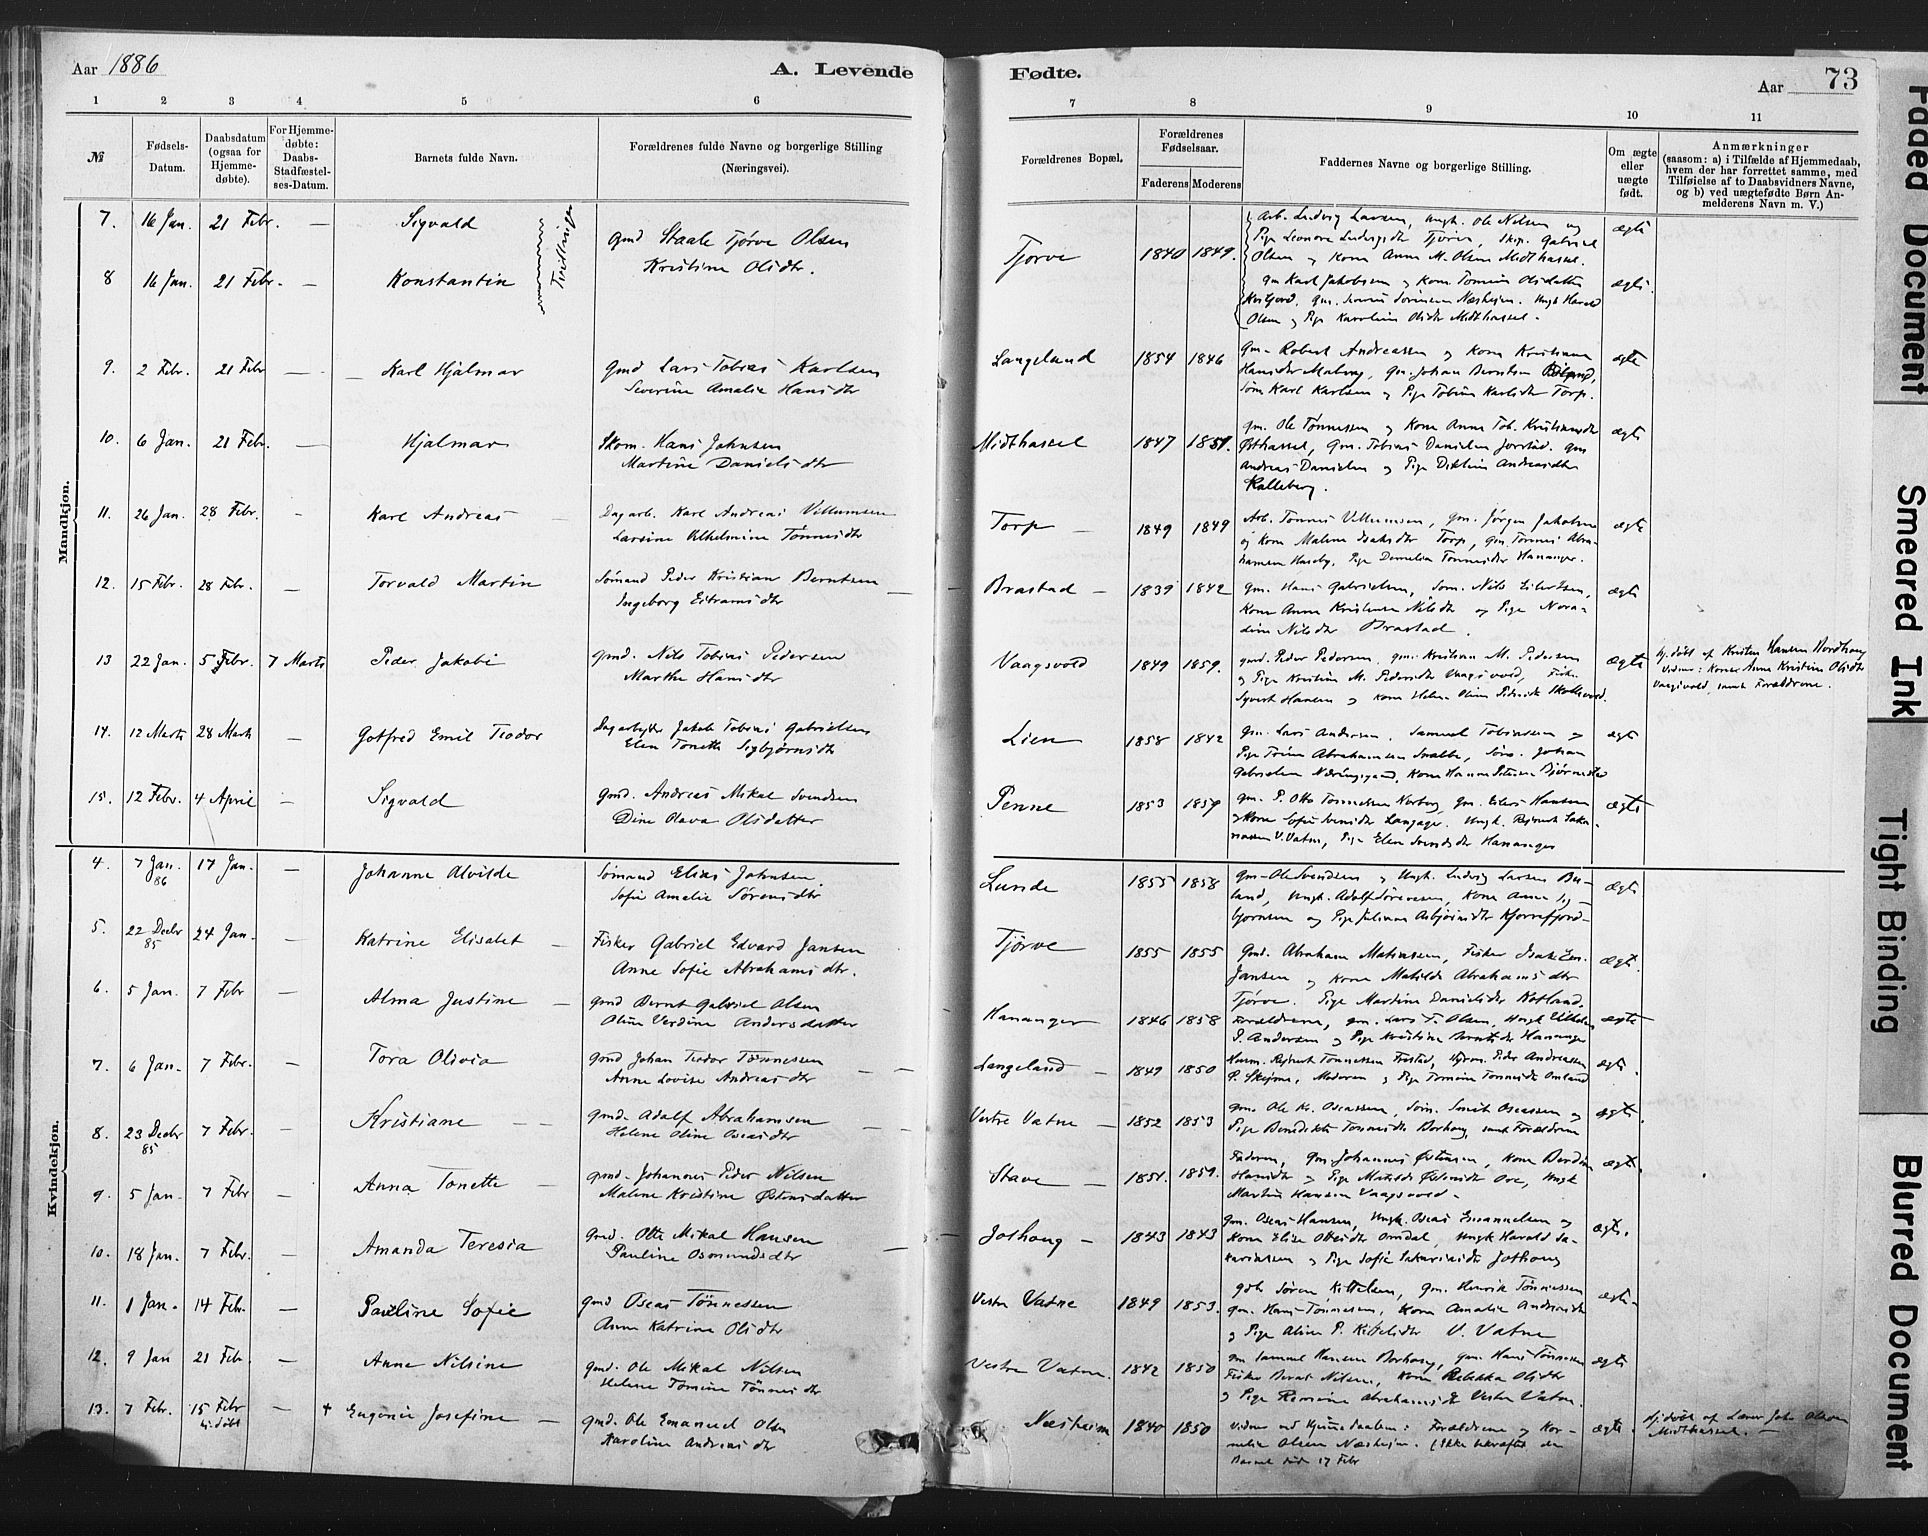 Aar 1886
A. Levende
Fødte.
Aar 73
1 2 3 4 5 6 7 8 9 10 11
№
Fødsels-
Datum.
Daabsdatum
(ogsaa for
Hjemme-
døbte).
For Hjemme-
døbte:
Daabs-
Stadfæstel-
ses-Datum.
Barnets fulde Navn.
Forældrenes fulde Navne og borgerlige Stilling
(Næringsvei).
Forældrenes Bopæl.
Forældrenes
Fødselsaar.
Faderens Moderens
Faddernes Navne og borgerlige Stilling.
Om ægte
eller
uægte
født.
Anmærkninger
(saasom: a) i Tilfælde af Hjemmedaab,
hvem der har forrettet samme, med
Tilføielse af to Daabsvidners Navne,
og b) ved uægtefødte Børn An-
melderens Navn m. V.)
Mandkjøn.
7. 16 Jan. 21 Febr. — Sigvald
Tvillinger
gmd Staale Tjørve Olsen
Kristine Olsdtr.
Tjørve 1840 1849.
Arb. Ludvig Larsen, Ungk. Ole Nilsen og
Pige Leonore Ludvigsdtr Tjørve, Skip. Gabriel
Olsen og Kone Anne M. Olsen Midthassel.
ægte
8 16 Jan. 21 Febr. — Konstantin
gm Karl Jakobsen og Kone Tomine Olsdatter
Olsen og Pige Karoline Olsdtr Midthassel.
ægte.
9. 2 Febr. 21 Febr — Karl Hjalmar
gmd Lars Tobias Karlsen
Severine Amalie Hansdtr
Langeland 1854 1846
gm. Robert Andreassen og Kone Kristiane
Hansdtr Malberg, gm. Johan Berntsen
Søm Karl Karlsen og Pige Tobine Karlsdtr Torp.
ægte
10. 6 Jan. 21 Febr. — Hjalmar
Skom. Hans Johnsen
Martine Danielsdtr
Midthassel 1847 1851.
gm. Ole Tønnessen og Kone Anne Tob. Kristiansdtr
Østhassel, gm. Tobias Danielsen Jorstad. gm
Andreas Danielsen og Pige Andreasdtr
Kalleberg.
ægte
11. 26 Jan. 28 Febr. - Karl Andreas —
Dagarb. Karl Andreas Villumsen
Larsine Vilhelmine Tønnesdtr
Torp — 1849 1849
Arb. Tønnes Villumsen, gm. Jørgen Jakobsen
og Kone Malene Isaksdtr Torp, gm. Tønnes Abra-
hamsen Haseby, Pige Tønnesdtr Hananger.
ægte
12. 15 Febr. 28 Febr. — Torvald Martin
Sømand Peder Kristian Berntsen
Ingeborg Eitramsdtr
Brastad — 1839 1842
gm. Hans Gabrielsen, Søm. Nils Eilertsen,
Kone Anne Kristense Nilsdtr og Pige Nora-
dine Nilsdtr Brastad.
ægte
13 22 Jan. 5 Febr. 7 Marts Peder Jakobi
gmd. Nils Tobias Pedersen
Marthe Hansdtr
Vaagsvold 1849 1859.
gmd. Peder Pedersen, gm. Kristian M. Pedersen
og Pige Kristine M. Pedersdtr Vaagsvold, Fisk.
Syvert Hansen og Kone Helene Oline Pedersdtr Skollevold.
ægte
hj. døbt af Kristen Hansen Nordhong
Vidner: Konen Anne Kristine Olsdtr
Vaagsvold, samt Forældrene.
14. 12 Marts 28 Marts — Gotfred Emil Teodor
Dagarbejder Jakob Tobias Gabrielsen
Elen Tonette Sigbjørnsdtr
Lien 1858 1842
gm. Lars Andersen, Samuel Tobiassen og
Pige Trine Abrahamsen Snalbe, Søm. Johan
Gabrielsen
ægte
15. 12 Febr. 4 April — Sigvald
gmd. Andreas Mikal Svendsen
Dine Olava Olsdatter
Penne 1853 1859
gm. P. Otto Tønnessen Korberg, gm. Eilert Hansen
og Kone Sofie Svensdtr Langager. Ungk. Reinert Saka-
riassen V. Vatne, Pige Elen Svendsdtr Hananger
ægte
Kvindekjøn.
4. 7 Jan. 86 17 Jan. — Johanne Alvilde
Sømand Elias Johnsen
Sofie Amalie Sørensdtr
Lunde 1855 1858
gm. Ole Svendsen og Ungk. Ludvig Larsen Bu-
land, Ungk. Adolf Sørensen, Kone Anne Sig-
bjørnsen og Pige Juliane Asbjørnsdtr Kjørrefjord.
ægte
5. 22 Decbr 85 24 Jan. — Katrine Elisabet —
Fisker Gabriel Edvard Jansen
Anne Sofie Abrahamsdtr.
Tjørve 1855 1855
Gmd. Abraham Mathiasen, Fisker Isak En.
Jansen og Kone Matilde Abrahamsdtr
Tjørve. Pige Martine Danielsdtr Kotland.
ægte.
6. 5 Jan. 7 Febr — Alma Justine —
gmd Bernt Gabriel Olsen
Oline Verdine Andersdatter
Hananger — 1846 1858
Forældrene, gm. Lars T. Olsen, Ungk Vilhelm
S. Andersen og Pige Kristine Berntsdtr Hananger
ægte
7. 6 Jan. 7 Febr. — Tora Olivia
gmd Johan Teodor Tønnessen
Anne Lovise Andreasdtr
Langeland — 1849 1850
Husm. Reinert Tønnessen Frestad, Peder Andreassen
P. Skeime, Moderen og Pige Tomine Tønnesdtr Omland
ægte.
8. 23 Decbr 85 7 Febr. — Kristiane — —
gmd. Adolf Abrahamsen
Helene Oline Oseasdtr
Vestre Vatne — 1852 1853
gm. Ole Kr. Oseassen, Søm. Smith Oseassen og
Pige Benedikte Tønnesdtr Borhaug, samt Forældrene
ægte.
9. 5 Jan. 7 Febr — Anna Tonette —
gmd. Johannes Peder Nilsen
Malene Kristine Østensdatter
Stave — 1851. 1859.
Faderen, gm. Johannes Østensen, Kone Berdine
Hansdtr og Pige Matilde Østensdtr Ore, Ungk
Martin Hansen Vaagsvold.
ægte.
10. 18 Jan. 7 Febr. — Amanda Teresia
gmd. Otto Mikal Hansen
Pauline Osmundsdtr
Joshaug — 1843 1843
gm. Oseas Hansen, Ungk. Oseas Emanuelsen og
Kone Elise Ottesdtr Omdal, Ungk Harald Sa-
kariassen og Pige Sofie Sakariasdtr Joshaug
ægte.
11. 1 Jan. 14 Febr. — Pauline Sofie
gmd Oseas Tønnessen
Anne Katrine Olsdtr
Vestre Vatne 1849 1853.
gdb Søren Kittelsen, gm. Henrik Tønnessen
gm. Hans Tønnessen, Kone Amalie Andreasdtr
og Pige Aline P. Kittelsdtr V. Vatne
ægte.
12. 9 Jan 21 Febr. — Anne Nilsine
gmd. Ole Mikal Nilsen
Helene Tomine Tønnesdtr
Vestre Vatne. 1842 1850
gm Samuel Hansen Borhaug, gm. Hans Tønnessen
Fisker Bernt Nilsen, Kone Rebekka Olsdtr
og Pige Abrahamsdtr Vestre Vatne.
ægte
13. 7 Febr. 15 Febr hj. døbt — + Eugenie Josefine —
gmd. Ole Emanuel Olsen
Karoline Andreasdtr
Næsheim 1840 1850
Vidner ved Hjemmedaaben: Forældrene og Kor-
nelie Olsen Næsheim. (Ikke bekræftet da
Barnet døde 17 Febr
ægte.
Hj. døbt af Lærer Johs Olsen
Midthassel. —
Faded Document
Smeared Ink
Tight Binding
Blurred Document